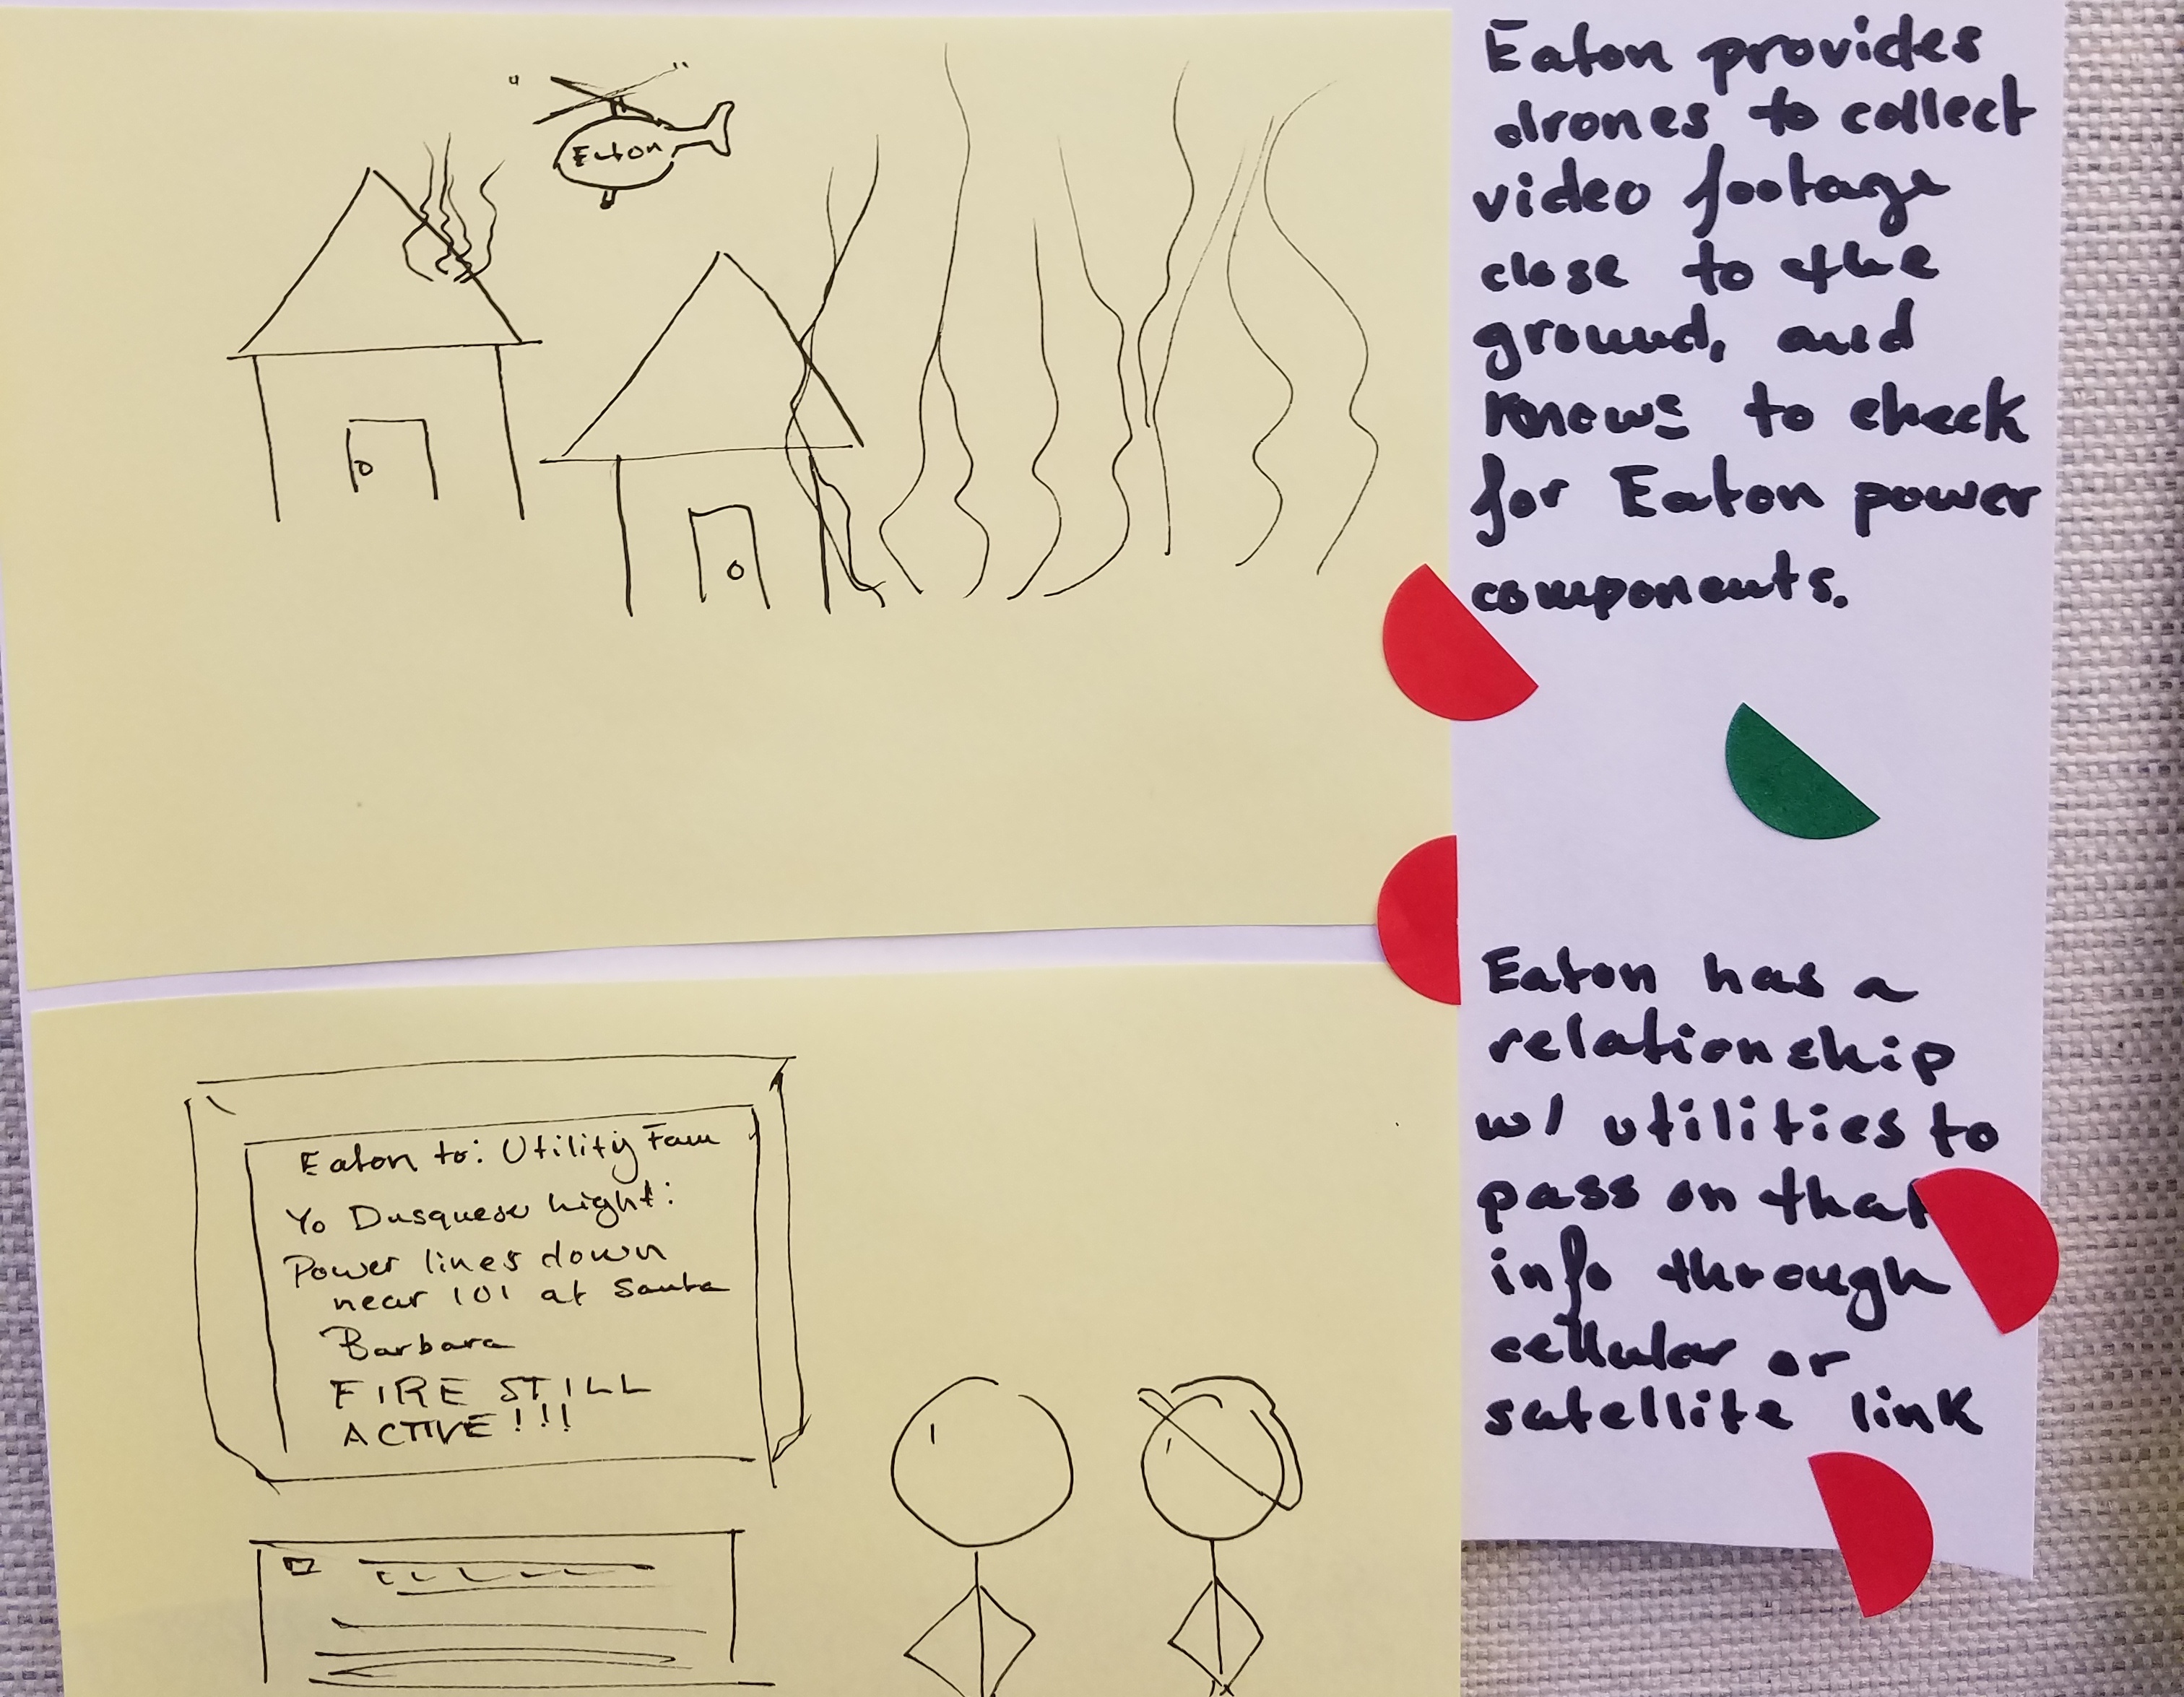 Eaton
Eaton provides
drones to collect
video footage
close to the
ground, and
knows to check
for Eaton power
components.
Eaton to: Utility Fam
Yo Dusquesw hight:
Power lines down
near 101 at Santa
Barbara
FIRE STILL
ACTIVE!!!
Eaton has a
relationship
w/ utilities to
pass on that
info through
cellular or
satellite link